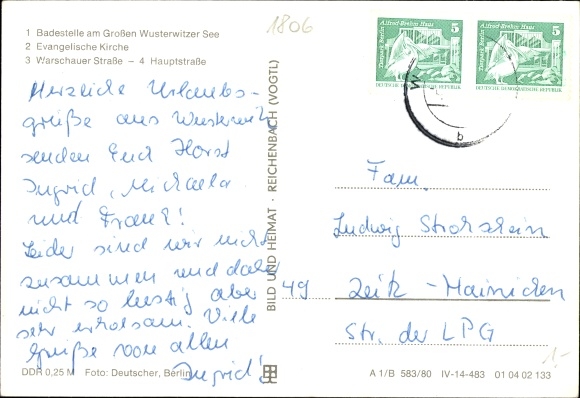 1 Badestelle am Großen Wusterwitzer See
2 Evangelische Kirche
3 Warschauer Straße – 4 Hauptstraße
1806
Herzliche Urlaubs-
grüße aus Wusterwitz
senden Euch Horst
Ingrid, Michaela
und Frank!
Leider sind wir nicht
zusammen und daher
nicht so lustig aber
sehr erholsam. Viele
Grüße von allen
Ingrid!
DDR 0,25 M Foto: Deutscher, Berlin
BILD UND HEIMAT · REICHENBACH (VOGTL)
Tierpark Berlin
Alfred-Brehm-Haus
5
DEUTSCHE DEMOKRATISCHE REPUBLIK
Tierpark Berlin
Alfred-Brehm-Haus
5
DEUTSCHE DEMOKRATISCHE REPUBLIK
W
b
Fam.
Ludwig
49 Zeitz - Hainichen
Str. der LPG
1,-
A 1/B 583/80 IV-14-483 01 04 02 133